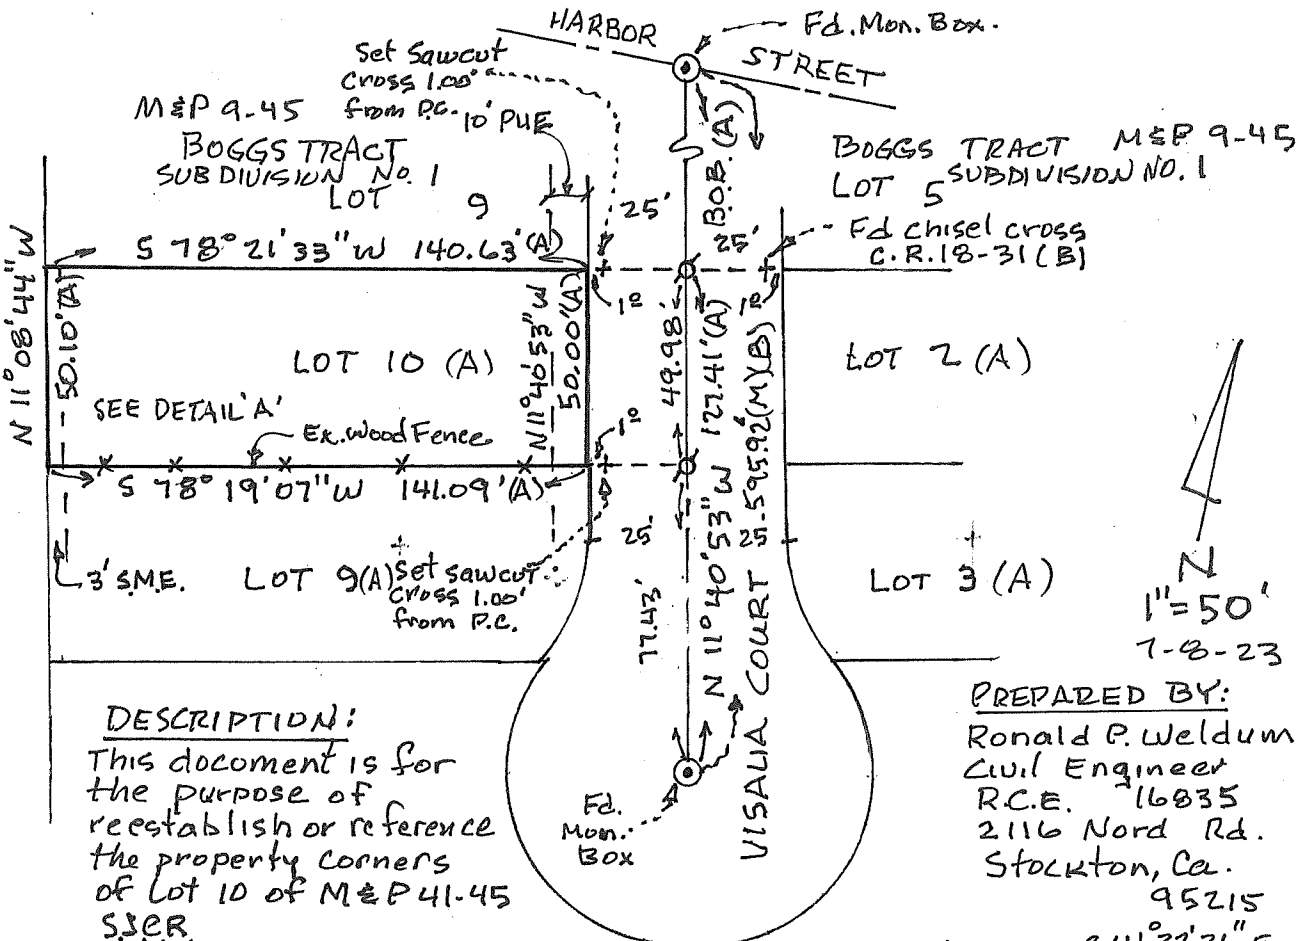 HARBOR STREET
Fd. Mon. Box.
Set Sawcut
Cross 1.00'
from P.C.
10' PUE
M&P 9-45
BOGGS TRACT
SUBDIVISION No. 1
LOT 9
BOGGS TRACT M&P 9-45
LOT 5 SUBDIVISION NO. 1
B.O.B. (A)
25'
25'
Fd chisel cross
C.R.18-31(B)
S 78° 21' 33" W 140.63' (A)
N 11° 08' 44" W
50.10' (A)
1º
1º
N 11° 40' 53" W
50.00' (A)
49.98'
127.41' (A)
595.92' (M)(B)
LOT 10 (A)
LOT 2 (A)
SEE DETAIL 'A'
Ex. Wood Fence
1º
S 78° 19' 07" W 141.09' (A)
25'
25
3' S.M.E.
LOT 9(A)
Set sawcut
cross 1.00'
from P.C.
LOT 3 (A)
77.43'
N 11° 40' 53" W
VISALIA COURT
N
1"=50'
7-8-23
DESCRIPTION:
This document is for
the purpose of
reestablish or reference
the property corners
of Lot 10 of M&P 41-45
SJCR
Fd.
Mon.
Box
PREPARED BY:
Ronald P. Weldum
Civil Engineer
R.C.E. 16835
2116 Nord Rd.
Stockton, Ca.
95215